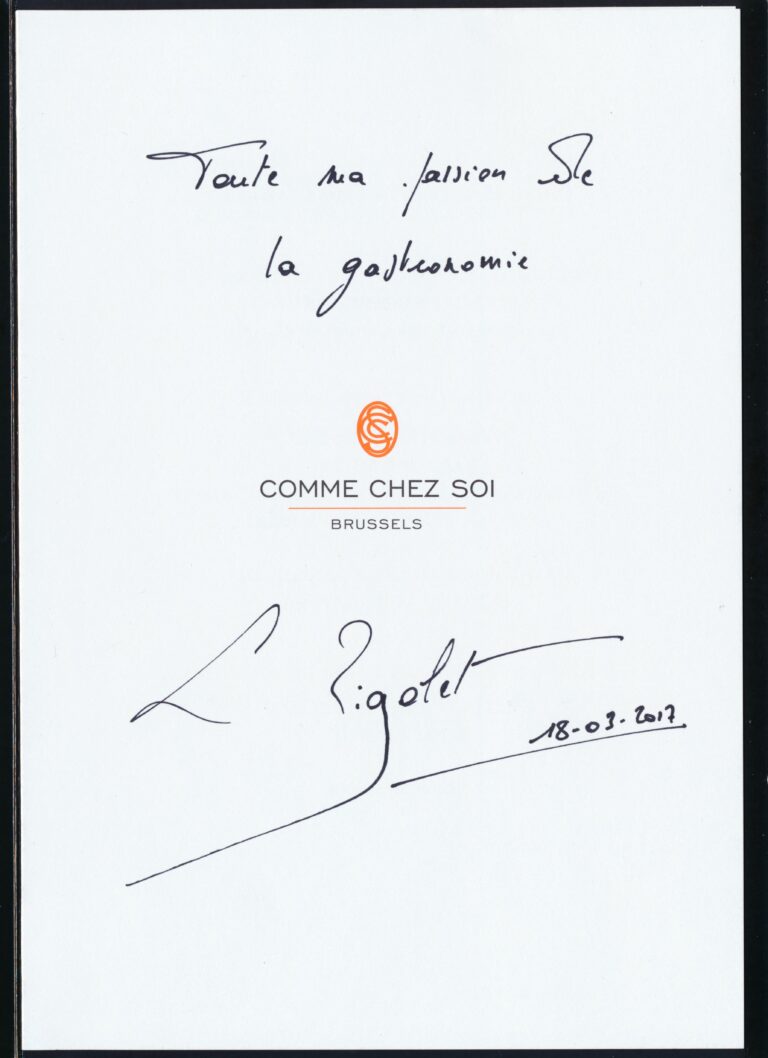 Toute ma passion de
la gastronomie
COMME CHEZ SOI
BRUSSELS
L Rigolet
18-03-2017